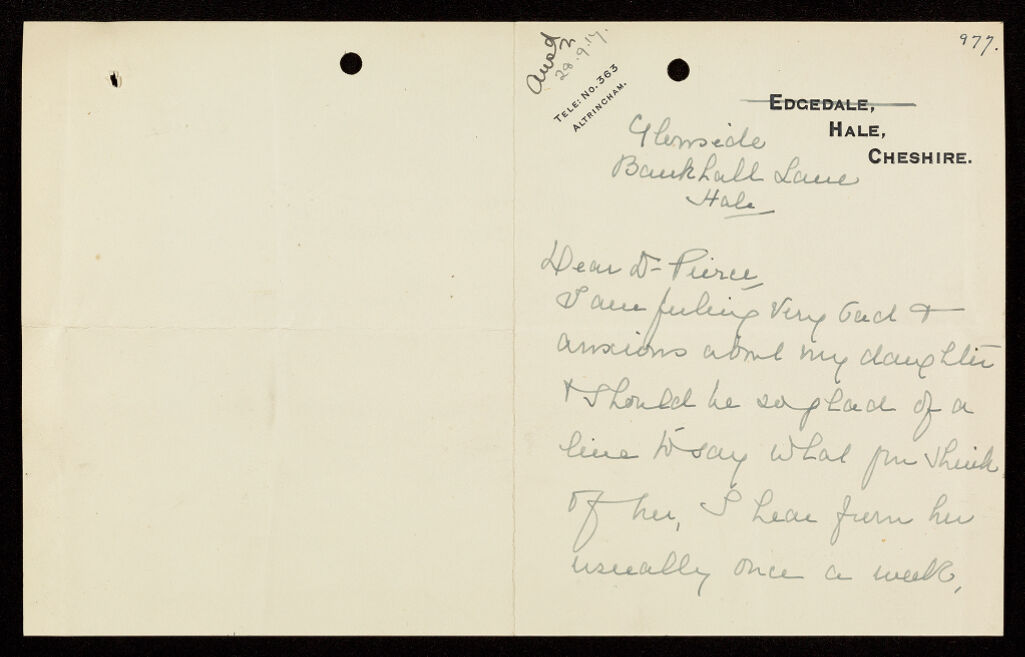 977.
Ansd
28.9.17.
TELE: NO. 363
ALTRINCHAM.
EDGEDALE,
HALE,
CHESHIRE.
Glenside
Bankhall Lane
Hale
Dear Dr Pierce,
I am feeling very sad &
anxious about my daughter
& should be so glad of a
line to say what you think
of her, I hear from her
usually once a week,